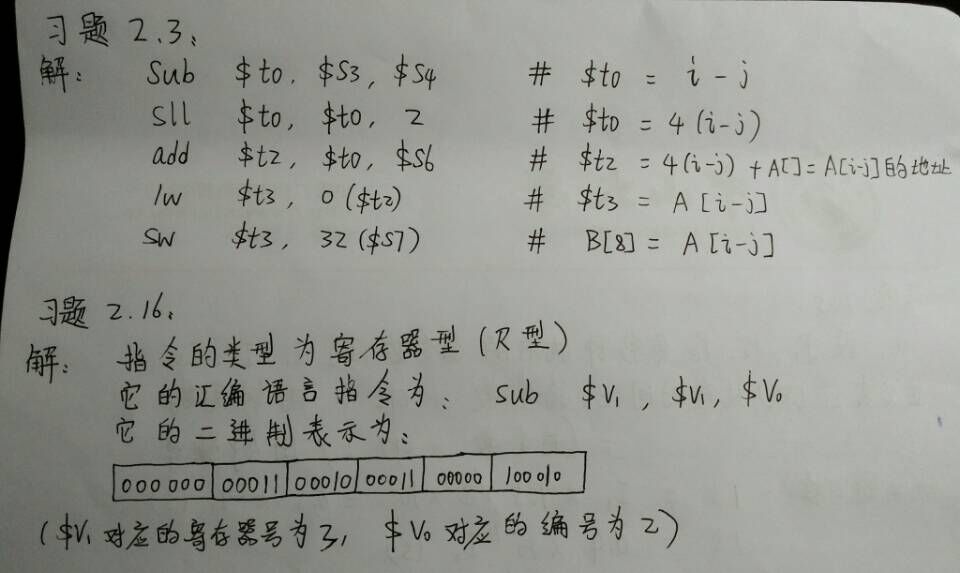 习题 2.3:
解: sub $t0, $s3, $s4 # $t0 = i - j
sll $t0, $t0, 2 # $t0 = 4(i-j)
add $t2, $t0, $s6 # $t2 = 4(i-j) + A[] = A[i-j]的地址
lw $t3, 0($t2) # $t3 = A[i-j]
sw $t3, 32($s7) # B[8] = A[i-j]
习题 2.16:
解: 指令的类型为寄存器型(R型)
它的汇编语言指令为: sub $V1, $V1, $V0
它的二进制表示为:
000000 00011 00010 00011 00000 100010
($V1对应的寄存器号为3, $V0对应的编号为2)